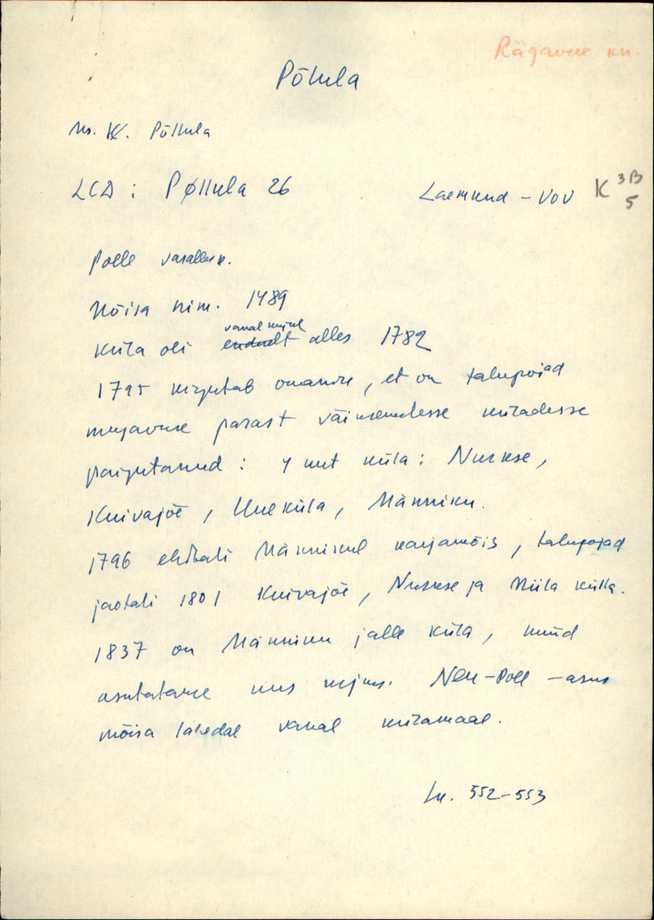 Rägavere kn.
Põlula
Ms. KK. Põllula
LCD : Pøllula 26 Laemund - VOV K 3B 5
Polle vasallisk.
Mõisa nim. 1489
Küla oli vanal kujul alles 1782
1795 kirjutab omanik, et on talupojad
mugavuse pärast väiksematesse küladesse
paigutanud : 4 uut küla : Nurkse,
Kuivajõe, Uueküla, Männiku.
1796 ehitati Männikul karjamõis, talupojad
jaotati 1801 Kuivajõe, Nurkse ja Miila külla.
1837 on Männiku jälle küla, nüüd
asutatakse uus mõis. Neu-Poll - asus
mõisa lähedal vanal külamaal.
Lk. 552-553